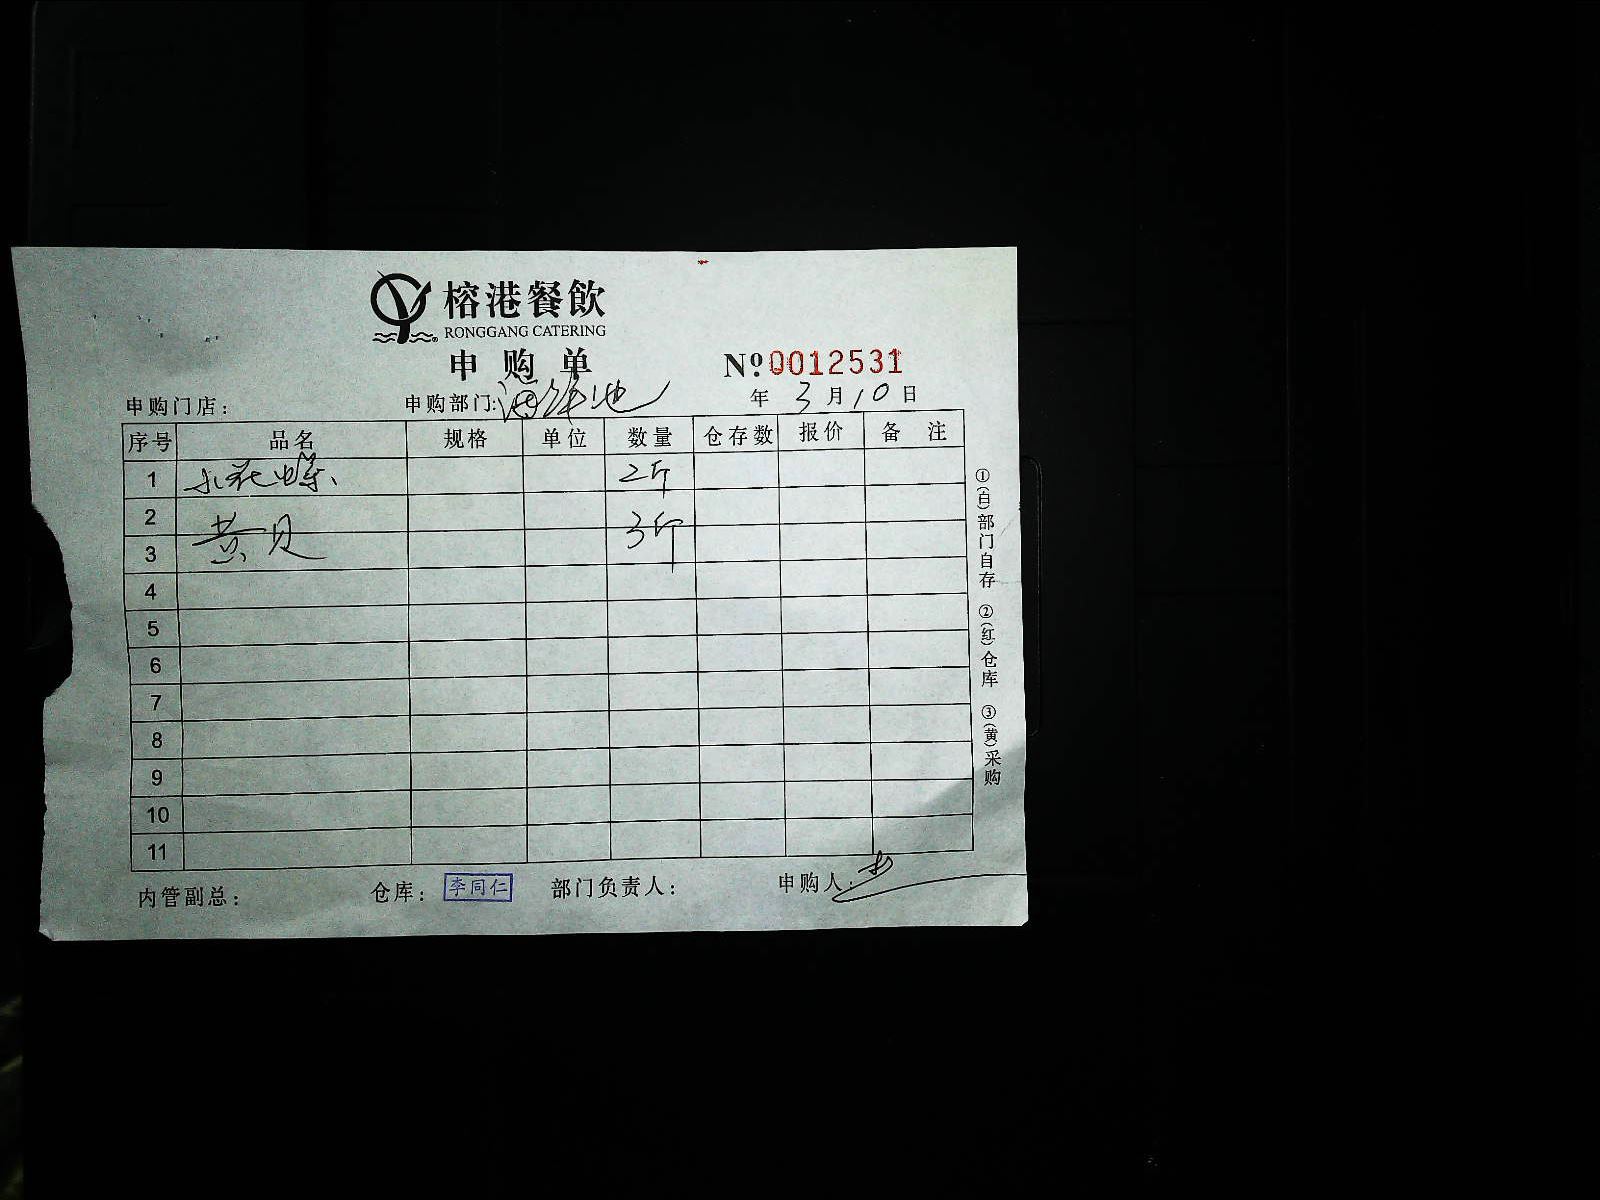 榕港餐飲
RONGGANG CATERING
申购单
Nº0012531
申购门店： 申购部门：海鲜池 年 3 月 10 日
序号 品名 规格 单位 数量 仓存数 报价 备注
1 小花螺 2斤
2
3 黄贝 3斤
4
5
6
7
8
9
10
11
内管副总： 仓库：李同仁 部门负责人： 申购人：
①(白)部门自存 ②(红)仓库 ③(黄)采购